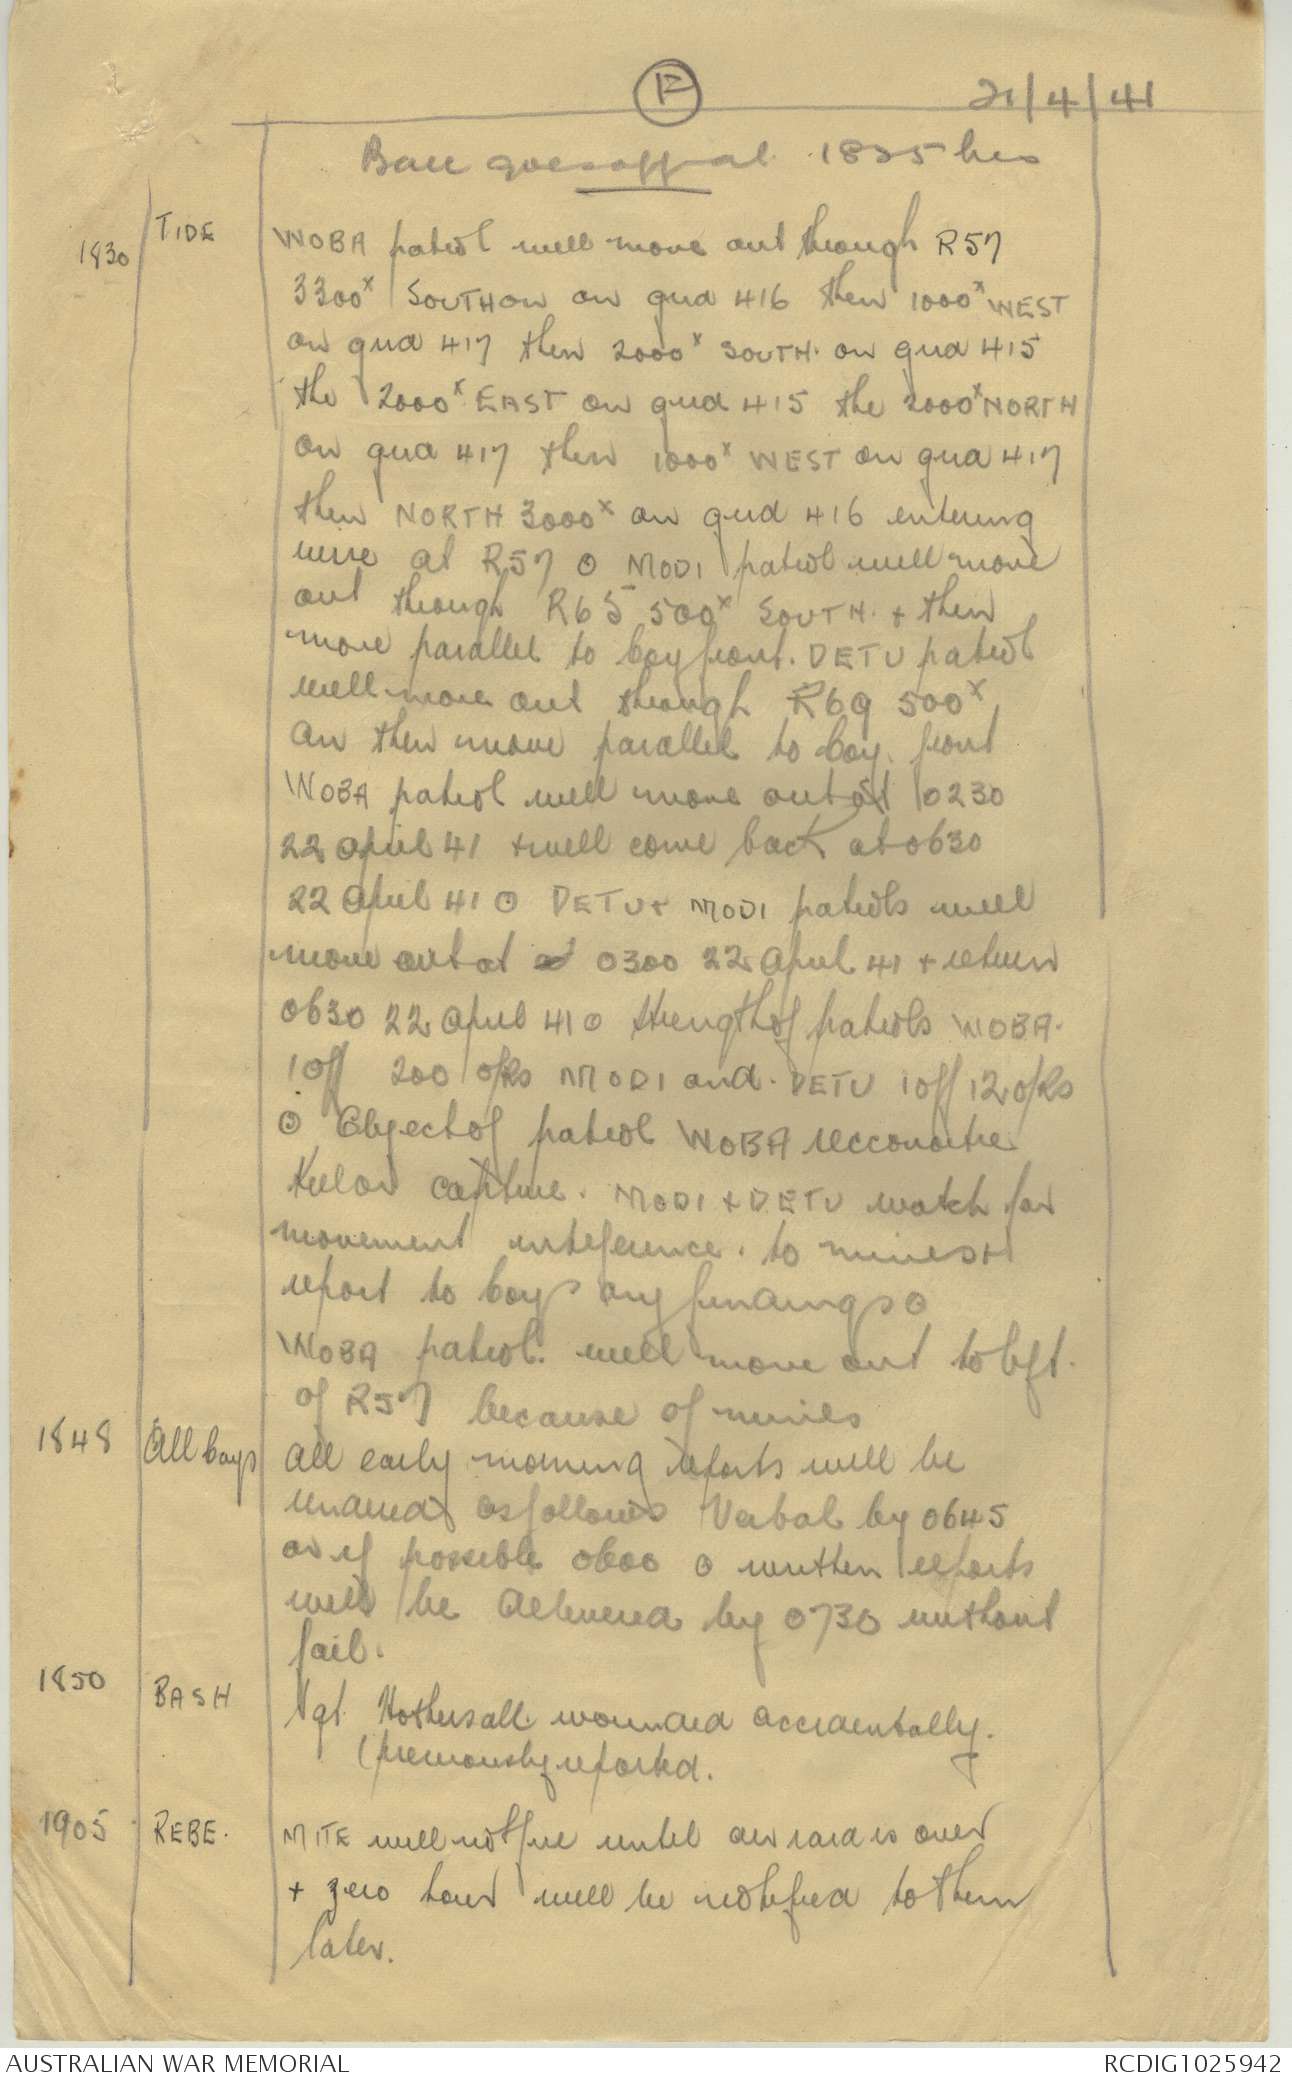 F
21/4/41
Ball goes off at 1825 hrs
1830 TIDE WOBA patrol will move out through R57
3300x SOUTH on on grid 416 then 1000x WEST
on grid 417 then 2000x SOUTH. on grid 415
the 2000x EAST on grid 415 the 2000x NORTH
on grid 417 then 1000x WEST on grid 417
then NORTH 3000x on grid 416 entering
wire at R57 ⊙ MODI patrol will move
out through R65 500x SOUTH. + then
move parallel to boy front. DETU patrol
will move out through R69 500x
an then move parallel to boy. front
WOBA patrol will move out at 0230
22 April 41 + will come back at 0630
22 April 41 ⊙ DETU + MODI patrols will
move out at 0300 22 April 41 + return
0630 22 April 41 ⊙ strength of patrols WOBA.
1 off 200 o/Rs MODI and. DETU 1 off 12 o/Rs
⊙ Object of patrol WOBA reconnoitre
Kill or capture. MODI + DETU watch for
movement interference. to mines +
report to boys any findings ⊙
WOBA patrol. will move out to left.
of R57 because of mines
1848 All boys All early morning reports will be
rendered as follows Verbal by 0645
or if possible 0600 ⊙ written reports
will be delivered by 0730 without
fail.
1850 BASH Sgt Hothersall wounded accidentally.
(previously reported.
1905 REBE. MITE will not fire until air raid is over
+ zero hour will be notified to them
later.
AUSTRALIAN WAR MEMORIAL RCDIG1025942